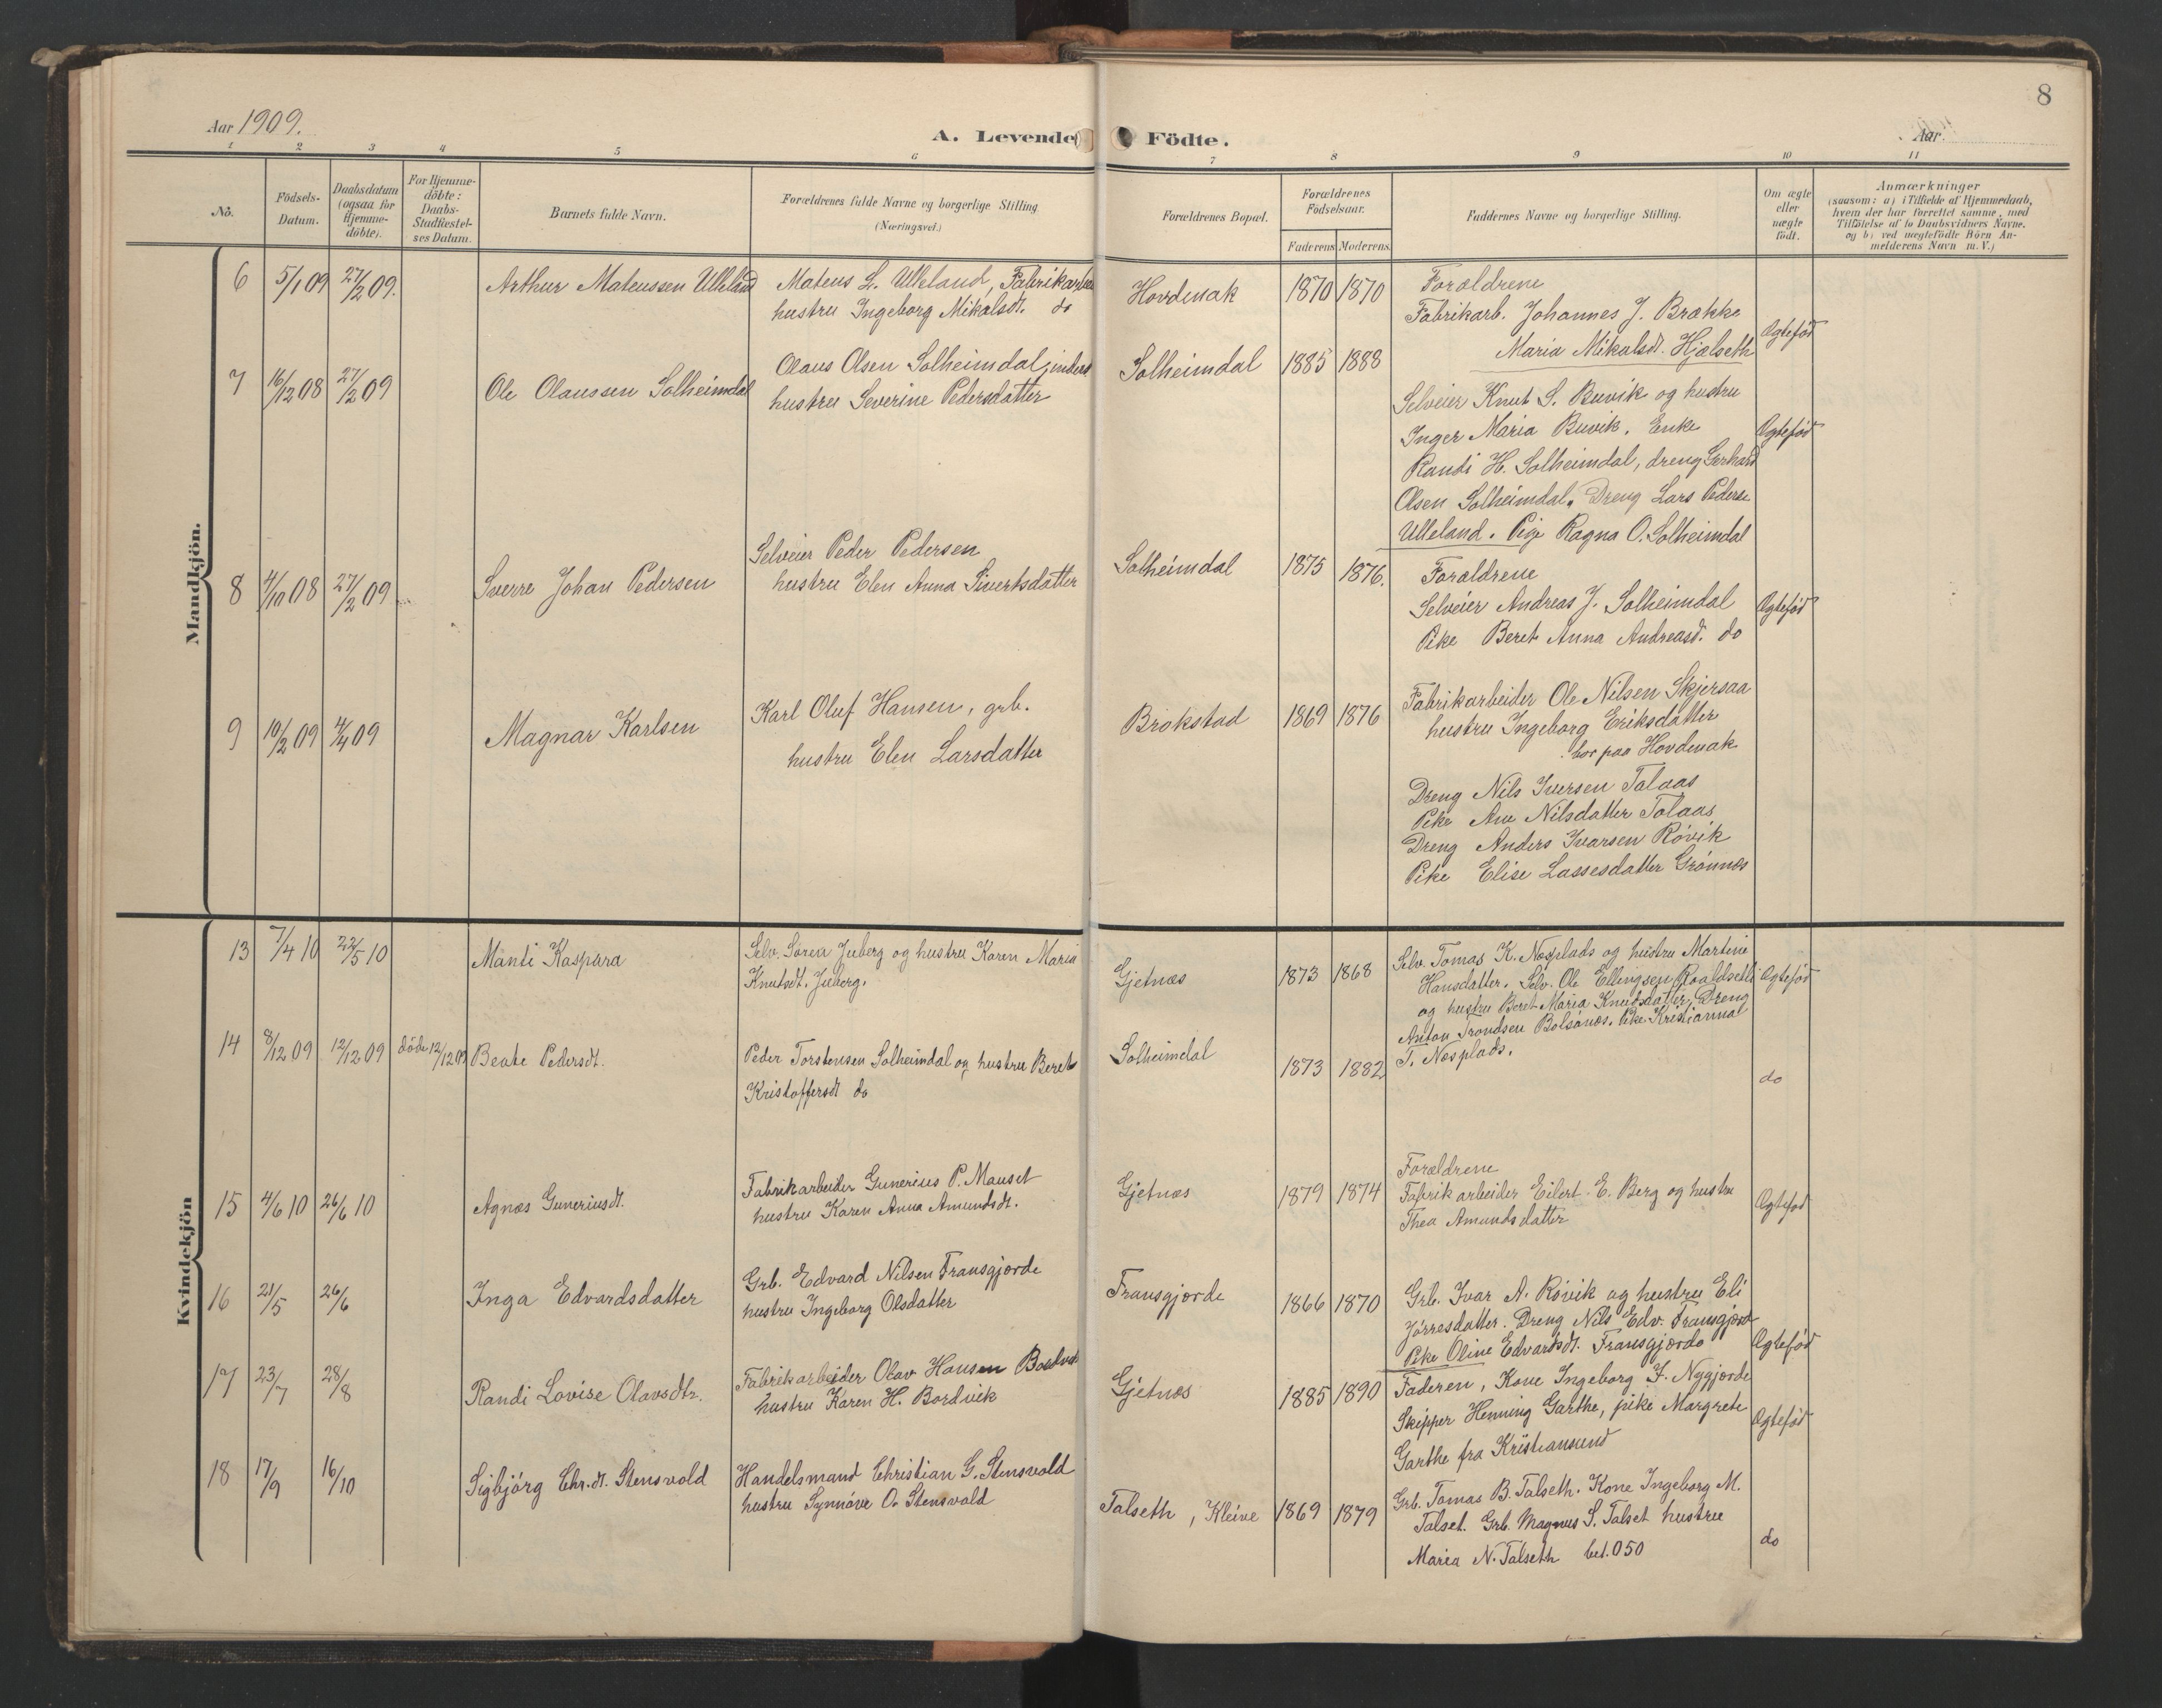 8
Aar 1909.
A. Levende Födte.
Aar
1 2 3 4 5 6 7 8 9 10 11
No.
Födsels-Datum.
Daabsdatum (ogsaa for Hjemme-döbte).
For Hjemme-döbte: Daabs-Stadfæstel-ses Datum.
Barnets fulde Navn.
Forældrenes fulde Navne og borgerlige Stilling
(Næringsvei.)
Forældrenes Bopæl.
Forældrenes Födselsaar.
Faderens Moderens
Faddernes Navne og borgerlige Stilling.
Om ægte eller uægte födt.
Anmærkninger
(saasom: a) i Tilfælde af Hjemmedaab,
hvem der har forrettet samme, med
Tilföielse af to Daabsvidners Navne.
og b) ved uægtefödte Börn An-
melderens Navn m.V.)
Mandkjön.
6 5/1 09 27/2 09. Arthur Mateussen Ulleland
Mateus L. Ulleland, Fabrikarbei
hustru Ingeborg Mikalsdt. do
Hovdenak 1870 1870
Forældrene
Fabrikarb. Johannes J. Brække
Maria Mikalsdt. Hjelseth
Ægtefød
7 16/12 08 27/2 09 Ole Olaussen Solheimdal
Olaus Olsen Solheimdal, inders
hustru Severine Pedersdatter
Solheimdal 1885 1888
Selveier Knut S. Buvik og hustru
Inger Maria Buvik. Enke
Randi H. Solheimdal, dreng Gerhard
Olsen Solheimdal. Dreng Lars Peders
Ulleland. Pige Ragna O. Solheimdal
Ægtefød
8 4/10 08 27/2 09 Sverre Johan Pedersen
Selveier Peder Pedersen
hustru Elen Anna Sivertsdatter
Solheimdal 1875 1876.
Forældrene
Selveier Andreas J. Solheimdal
Pike Beret Anna Andreasd. do
Ægtefød
9 10/2 09 4/4 09 Magnar Karlsen
Karl Oluf Hansen, grb.
hustru Elen Larsdatter
Brokstad 1869 1876
Fabrikarbeider Ole Nilsen Skjersaa
hustru Ingeborg Eriksdatter
bor paa Hovdenak
Dreng Nils Iversen Talaas
Pike Ane Nilsdatter Tolaas
Dreng Anders Ivarsen Røvik
Pike Elise Lassesdatter Grønnæs
Kvindekjön
13 7/4 10 22/5 10 Manti Kaspara
Selv. Søren Juberg og hustru Karen Maria
Knutsdt. Juberg.
Gjetnæs 1873 1868
Selv. Tomas K. Næsplads og hustru Martine
Hansdatter. Selv. Ole Ellingsen Roaldseth
og hustru Beret Maria Knudsdatter, Dreng
Anton Trondsen Bolsønæs. Pike Kristianna
T. Næsplads.
Ægtefød
14 8/12 09 12/12 09 døde 12/12 09 Beate Pedersdt.
Peder Torstensen Solheimdal og hustru Beret
Kristoffersdt do
Solheimdal 1873 1882
do
15 4/6 10 26/6 10 Agnæs Guneriusdt.
Fabrikarbeider Gunerius P. Mauset
hustru Karen Anna Amundsdt.
Gjetnæs 1879 1874
Forældrene
Fabrikarbeider Eilert E. Berg og hustru
Thea Amundsdatter
Ægtefød
16 21/5 26/6 Inga Edvardsdatter
Grb. Edvard Nilsen Fransgjorde
hustru Ingeborg Olsdatter
Fransgjorde 1866 1870
Grb. Ivar A. Røvik og hustru Eli
Jørresdatter. Dreng Nils Edv. Fransgjord
Pike Oline Edvardsdt. Fransgjorde
Ægtefød
17 23/7 28/8 Randi Lovise Olavsdtr.
Fabrikarbeider Olav Hansen Bordvik
hustru Karen H. Bordvik
Gjetnæs 1885 1890
Faderen, Kone Ingeborg J. Nygjorde
Skipper Henning Garthe, pike Margrete
Garthe fra Kristiansund
Ægtefød
18 17/9 16/10 Sigbjørg Chr.dt. Stensvold
Handelsmand Christian G. Stensvold
hustru Synnøve O. Stensvold
Talseth, Kleive 1869 1879
Grb. Tomas B. Talseth. Kone Ingeborg M.
Talset. Grb. Magnus S. Talset hustru
Maria N. Talseth bet. 050
do